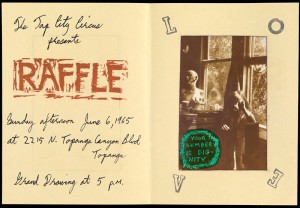 The Tap City Circus
presents
RAFFLE
Sunday afternoon June 6, 1965
at 2215 N. Topanga Canyon Blvd.
Topanga
Grand Drawing at 5 p.m.
L O
YOUR
NUMBER
IS DIG-
NITY
V E